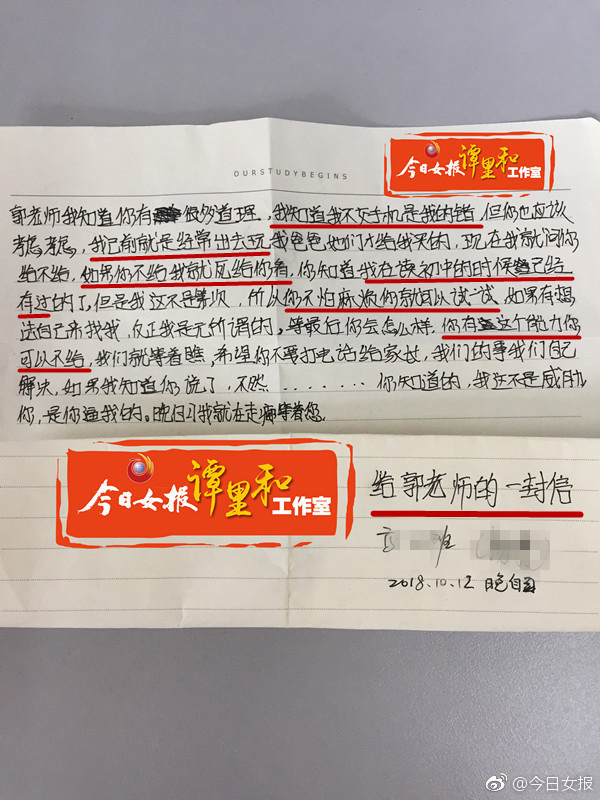 OURSTUDYBEGINS
今日女报 谭里和 工作室
郭老师我知道你有很多道理,我知道我不交手机是我的错但你也应该
考虑考虑,我已前就是经常出去玩我爸爸她们才给我买的,现在我就问你
给不给,如果你不给我就疯给你看,你知道我在读初中的时候已经
有过的了,但是我这不是第一次,所以你不怕麻烦你就可以试一试,如果有想
法自己来找我,反正我是无所谓的,等最后你会怎么样,你有这个能力你
可以不给,我们就等着瞧,希望你不要打电话给家长,我们的事我们自己
解决,如果我知道你说了,不然.......你知道的,我这不是威胁
你,是你逼我的。晚自习我就在走廊等着您。
今日女报 谭里和 工作室
给郭老师的一封信
班
2018.10.12 晚自习
@今日女报